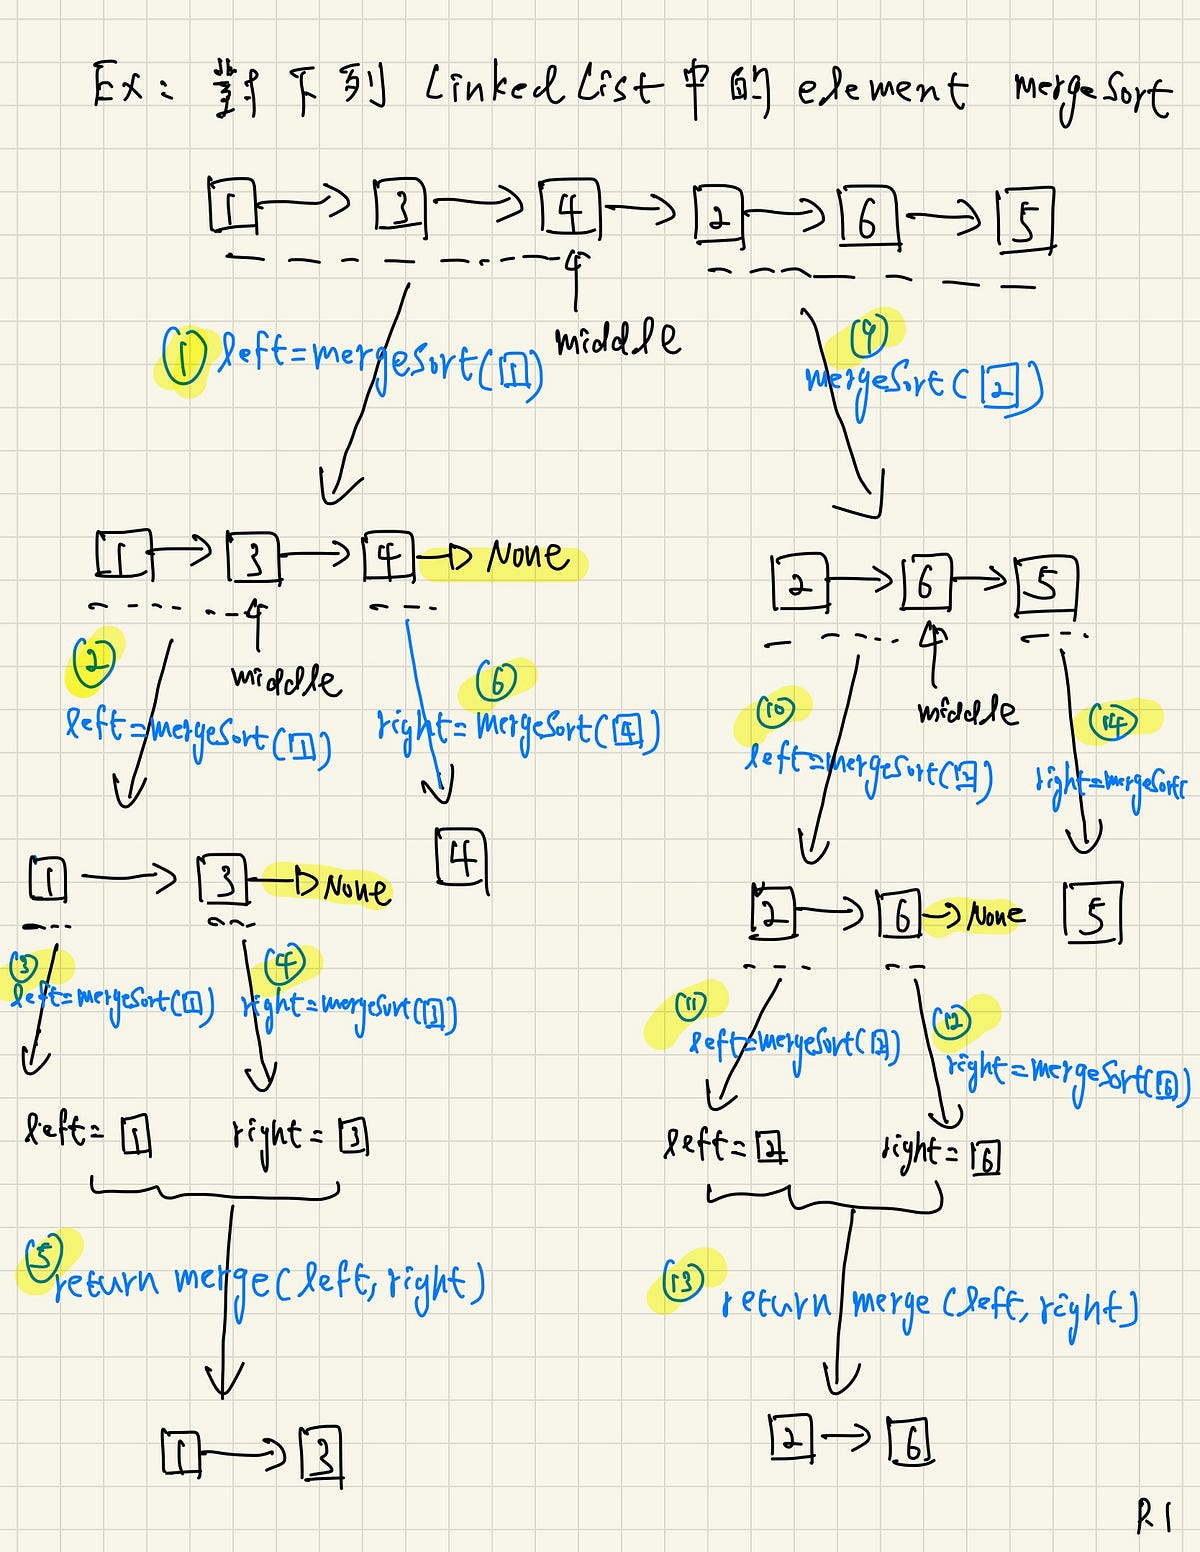 Ex: 對下列 Linked List 中的 element mergeSort
1 3 4 2 6 5
middle
① left=mergeSort(1)
⑨
mergeSort(2)
1 3 4 None
2 6 5
middle
middle
②
left=mergeSort(1)
⑥
right=mergeSort(4)
⑩
left=mergeSort(2)
⑭
right=mergeSort(
4
1 3 None
2 6 None 5
③
left=mergeSort(1)
④
right=mergeSort(3)
⑪
left=mergeSort(2)
⑫
right=mergeSort(6)
left=1 right=3
left=2 right=6
⑤
return merge(left, right)
⑬
return merge(left, right)
1 3
2 6
P.1